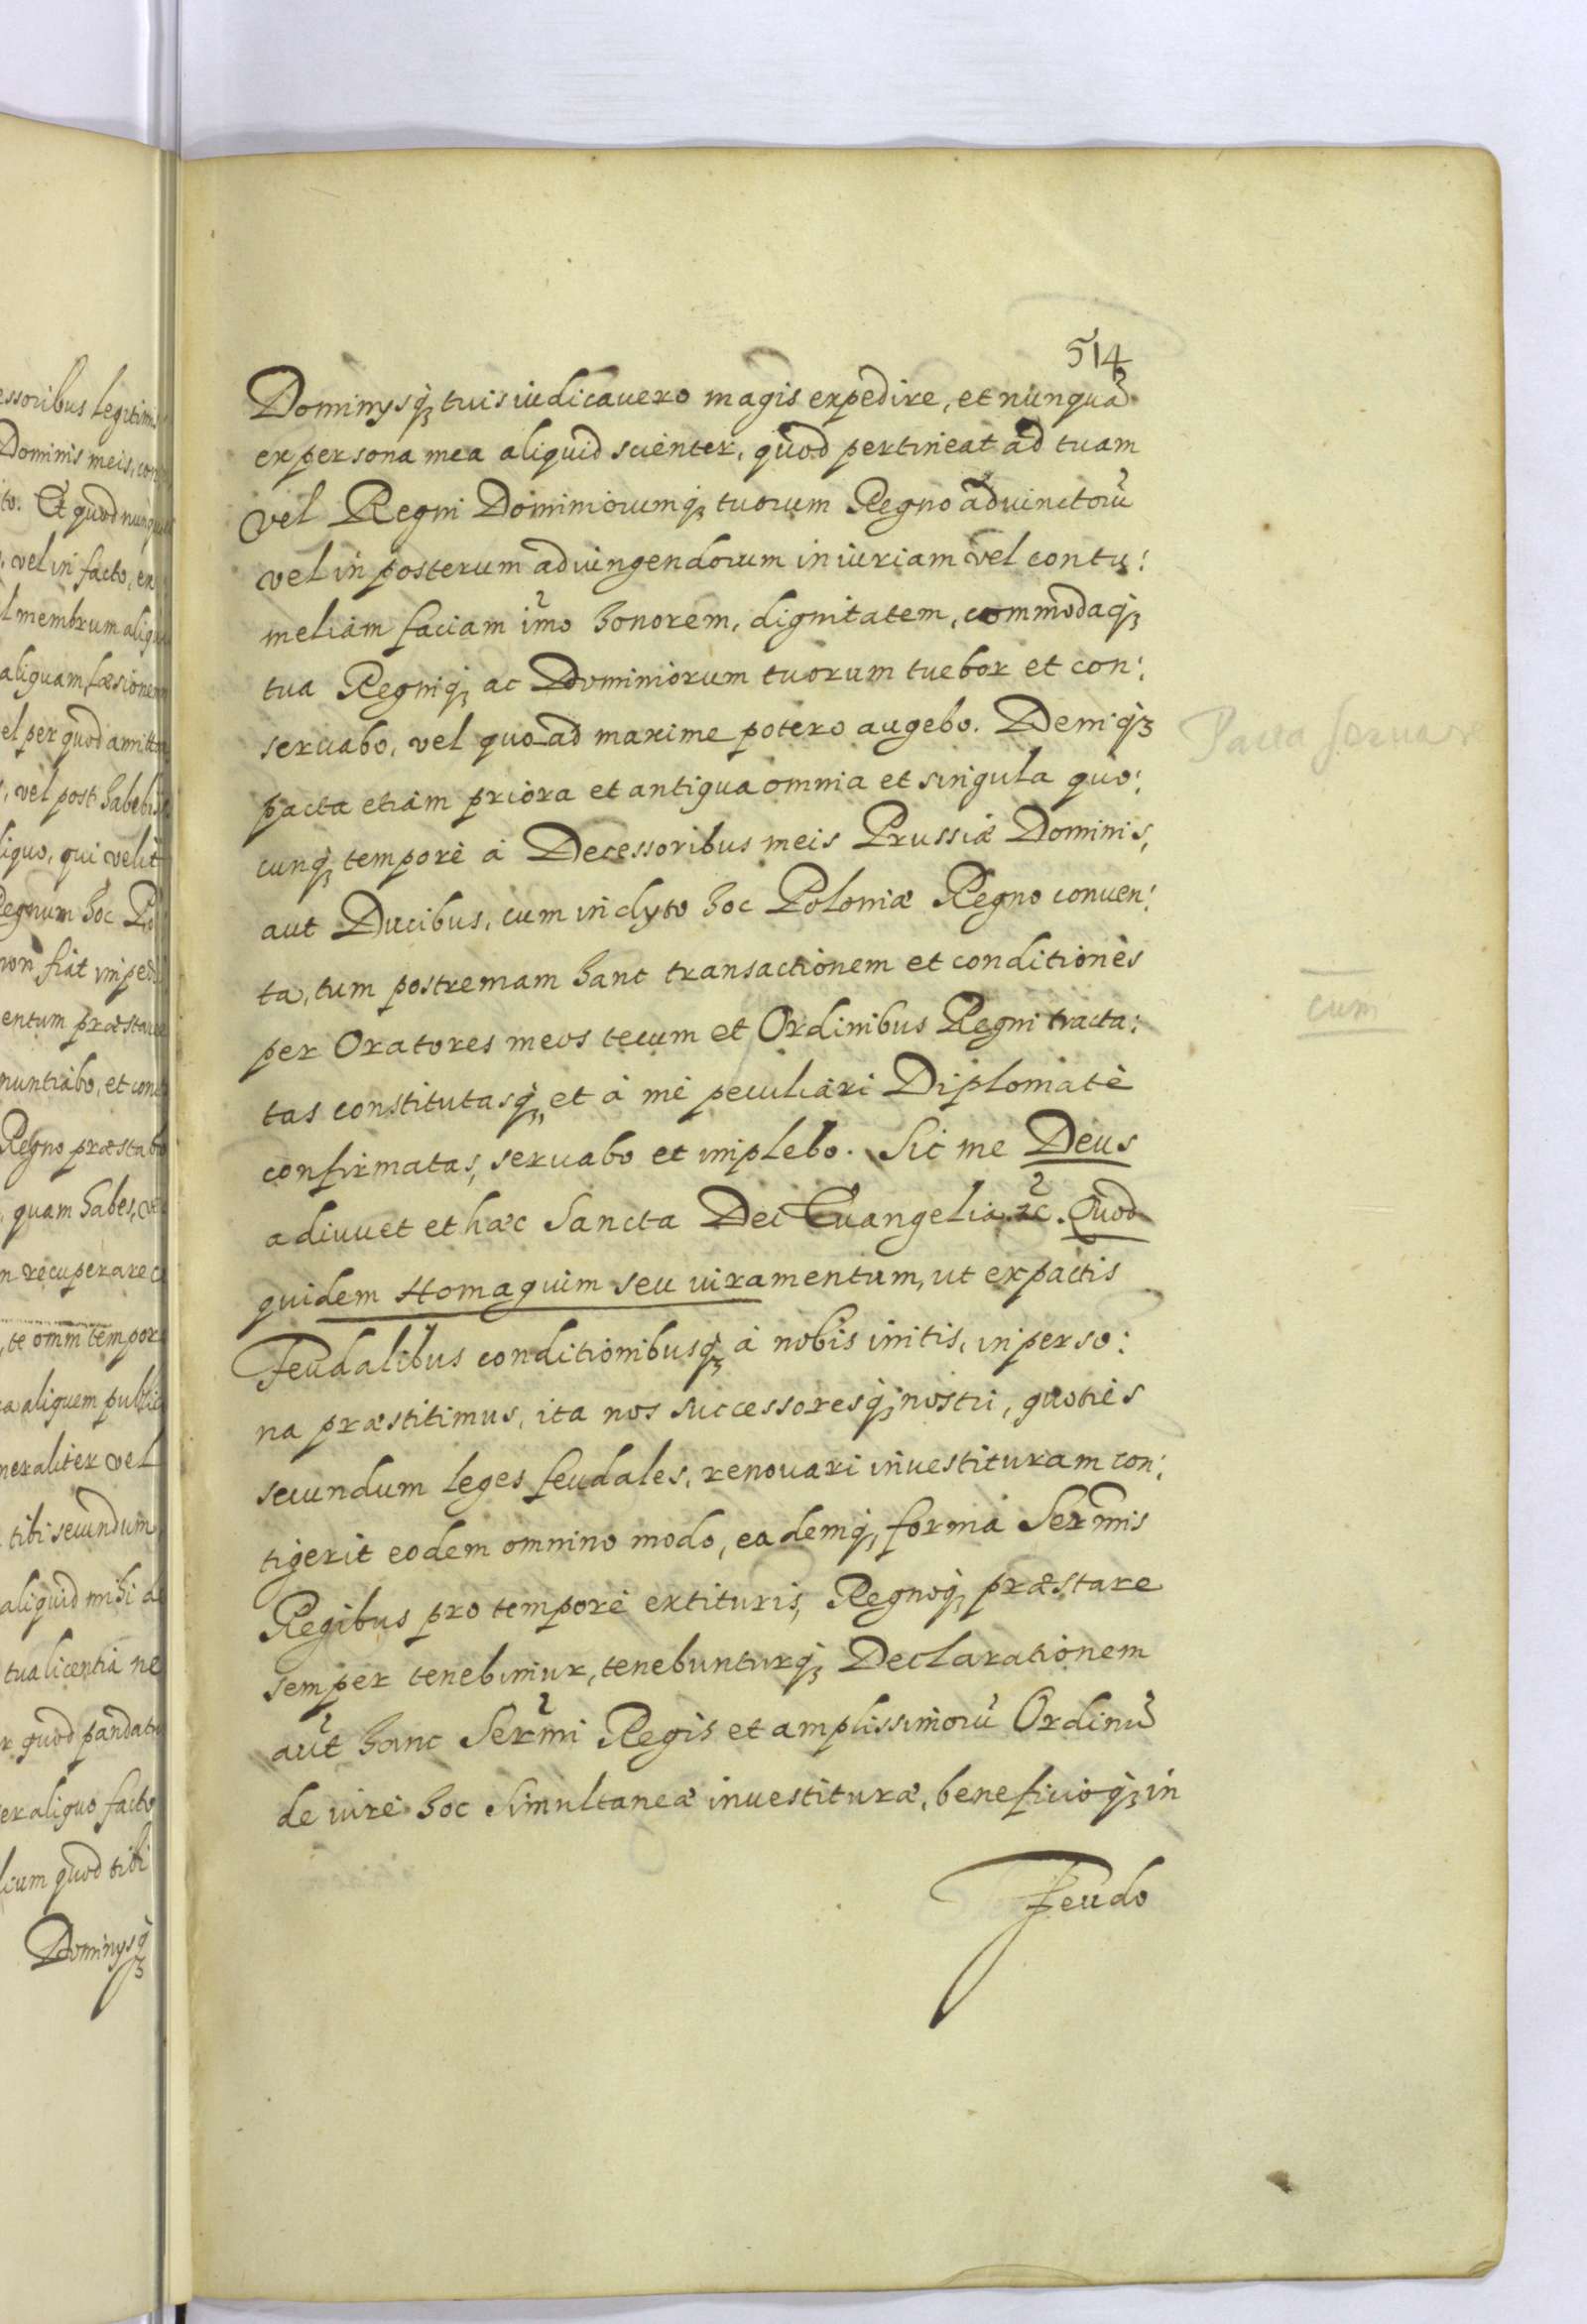 essoribus legitim
Dominis meis, con
to. Et quod nunqua
, vel in facto, ex
l membrum aliqu
aliquam læsionem
el per quod amitta
, vel post habebis
liquo, qui velit
Regnum hoc Po
non fiat imped
entum præstare
nuntiabo, et con
Regno præstabo
, quam habes, ve
n recuperare c
, te omni tempor
a aliquem public
neraliter vel
tibi secundum
aliquid mihi a
tua licentia ne
r quod pandatu
er aliquo facto
lium quod tibi
Dominysq̃
514
Dominysq̃ tuis iudicauero magis expedire, et nunquã
ex persona mea aliquid scienter, quod pertineat ad tuam
vel Regni Dominiorumq̃ tuorum Regno adiunctorũ
vel in posterum adiungendorum iniuriam vel contu:
meliam faciam imo honorem, dignitatem, commodaq̃
tua Regniq̃ ac Dominiorum tuorum tuebor et con:
seruabo, vel quo ad maxime potero augebo. Deniq̃
pacta etiam priora et antiqua omnia et singula quo:
cunq̃ tempore à Decessoribus meis Prussiæ Dominis,
aut Ducibus, cum inclyto hoc Poloniæ Regno conuen:
ta, tum postremam hanc transactionem et conditiones
per Oratores meos tecum et Ordinibus Regni tracta:
tas constitutasq̃, et à me peculiari Diplomate
confirmatas, seruabo et implebo. Sic me Deus
adiuuet et hæc Sancta Dei Euangelia. &c. Quod
quidem Homagium seu iuramentum, ut ex pactis
Feudalibus conditionibusq̃ à nobis initis, in perso:
na præstitimus, ita nos successoresq̃ nostri, quoties
secundum leges feudales, renouari inuestituram con:
tigerit eodem omnino modo, eademq̃, forma Sermis
Regibus pro tempore extituris, Regnoq̃ præstare
semper tenebimur, tenebunturq̃ Declarationem
aũt hanc Sermi Regis et amplissimorũ Ordinũ
de iure hoc simultaneæ inuestituræ, beneficioq̃ in
Feudo
Pacta seruare
cum